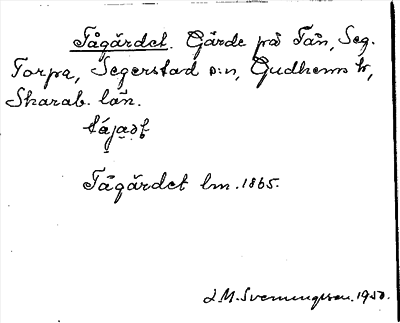 Tågärdet. Gärde på Tån, Seg.
Torpa, Segerstad s:n, Gudhems hd,
Skarab. län.
Tågärdet lm. 1865.
L.M. Svenungsson. 1950.